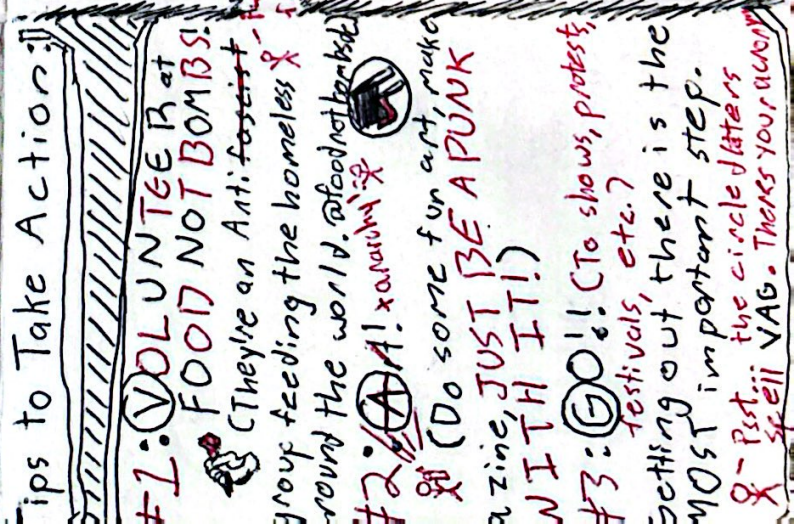 Tips to Take Action!!
#1: VOLUNTEER at
FOOD NOT BOMBS!
(They're an Anti fascist
group feeding the homeless
around the world. @foodnotbombs
#2: Art! xanarchy!
(Do some fun art, make
a zine, JUST BE A PUNK
WITH IT!)
#3: GO! (To shows, protests,
festivals, etc.)
Getting out there is the
MOST important step.
- Psst... the circled letters
spell VAG. Theres your acronym